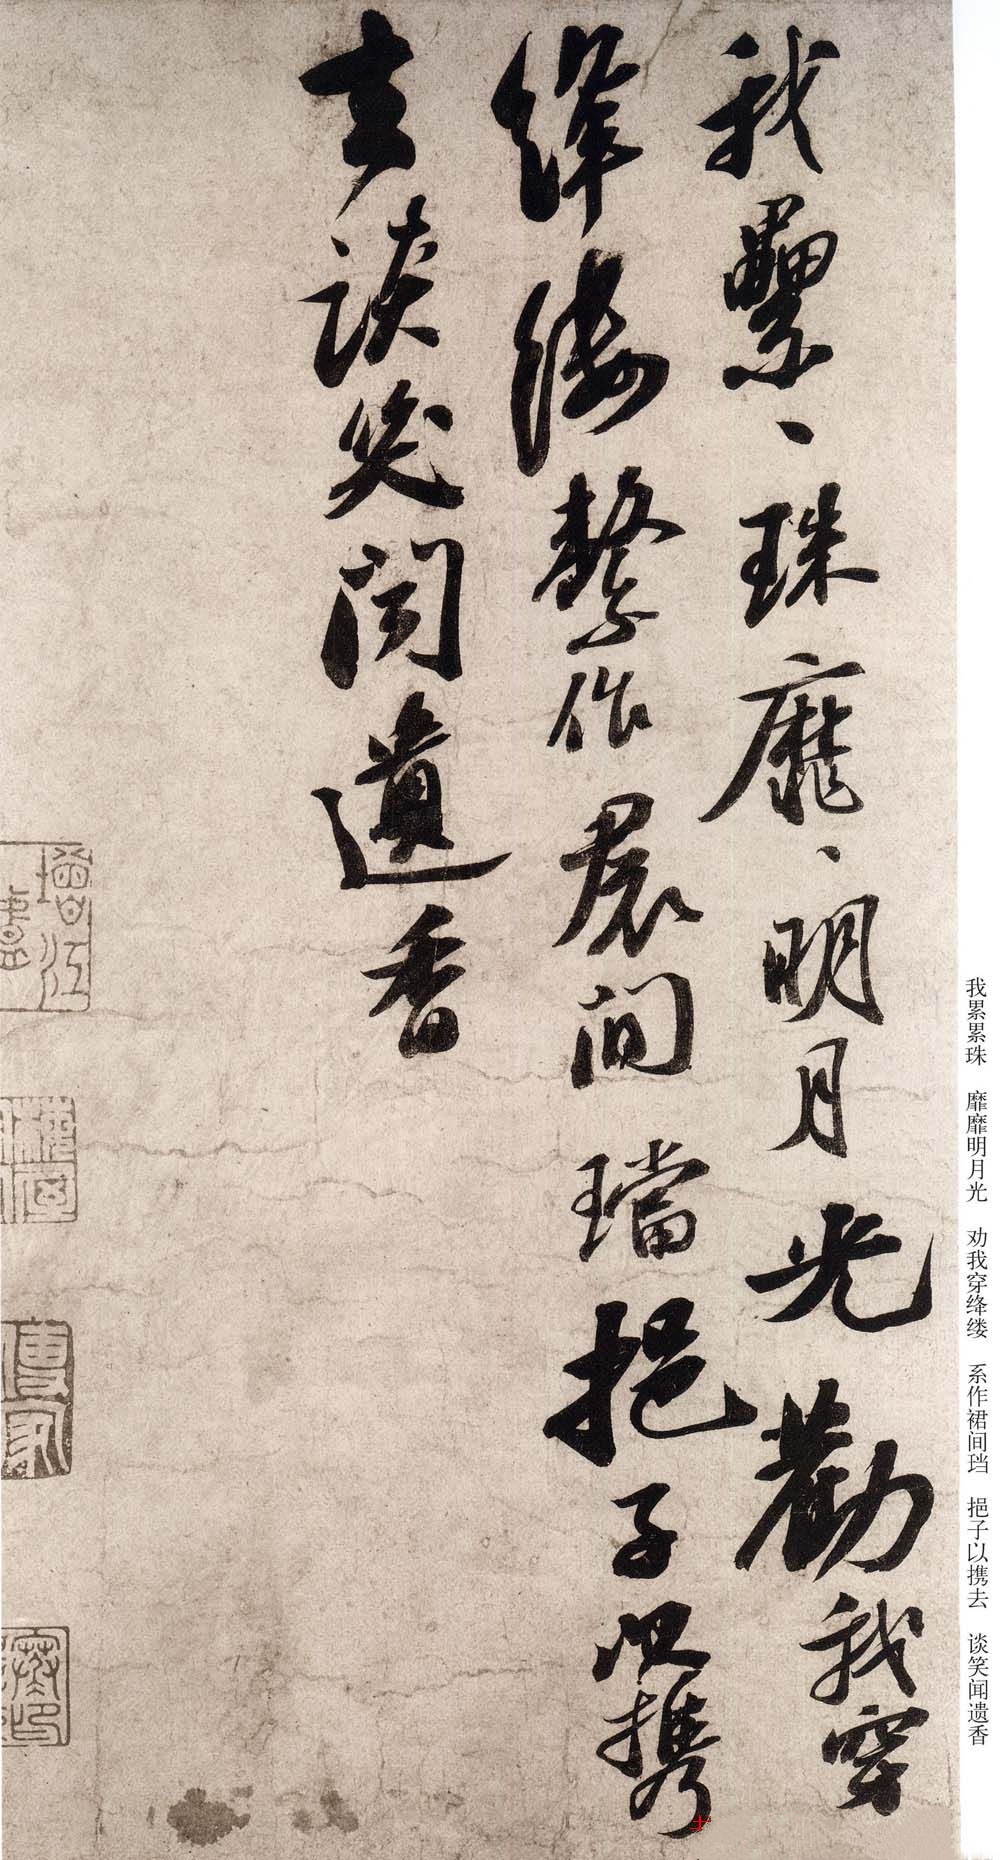 我纍〻珠靡〻明月光勸我穿
絳縷繫作裙間璫挹子以攜
去談笑聞遺香
我累累珠 靡靡明月光 劝我穿绛缕 系作裙间珰 挹子以携去 谈笑闻遗香